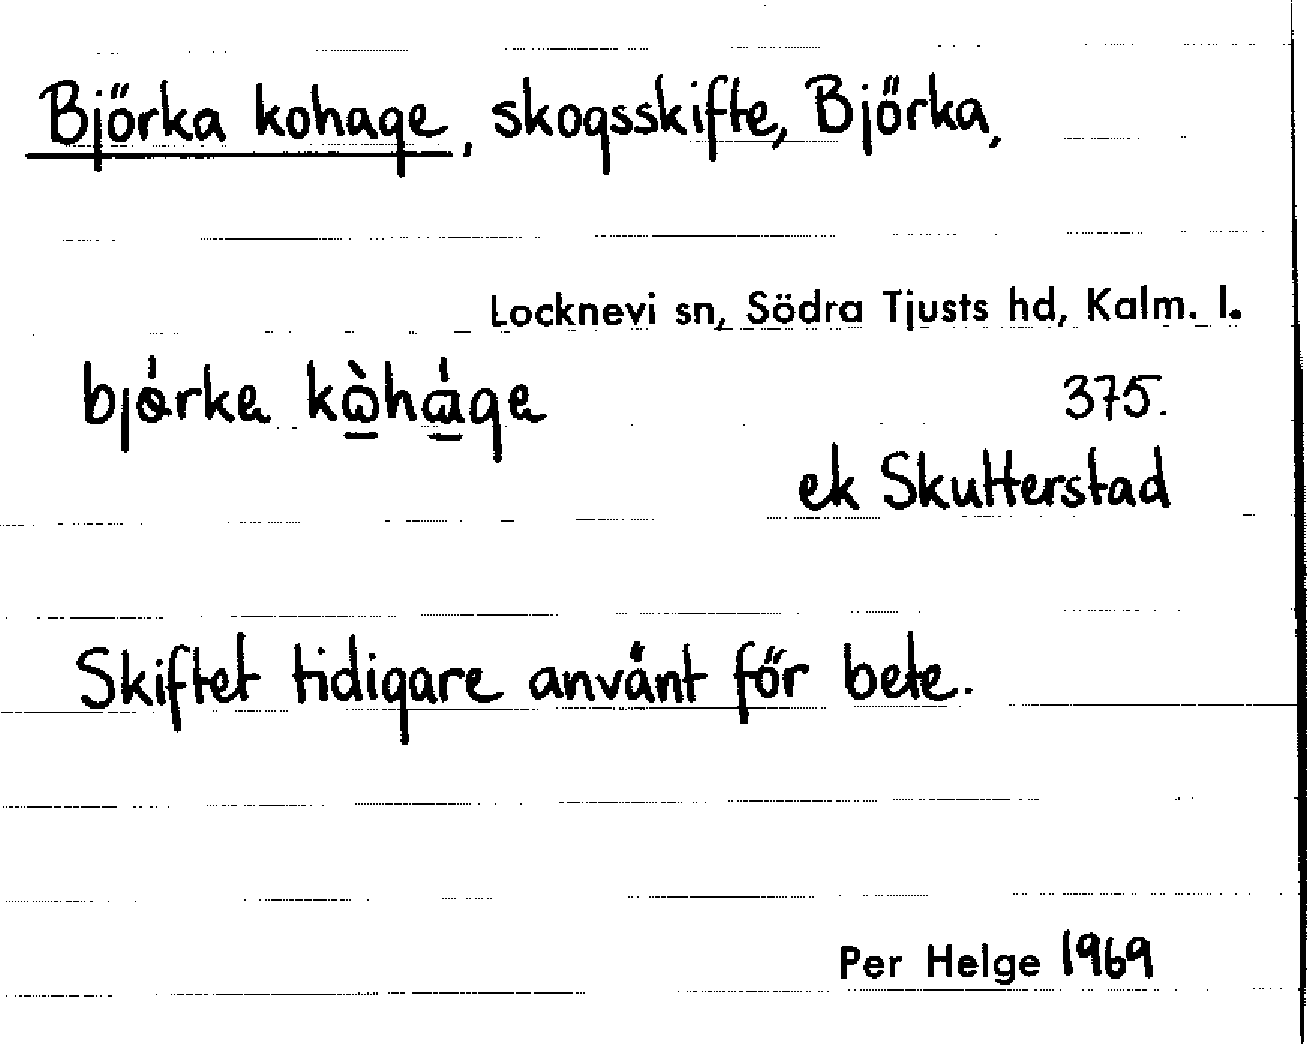 Björka kohage, skogsskifte, Björka,
Locknevi sn, Södra Tjusts hd, Kalm. l.
bjørka kòhage 375.
ek Skutterstad
Skiftet tidigare använt för bete.
Per Helge 1969